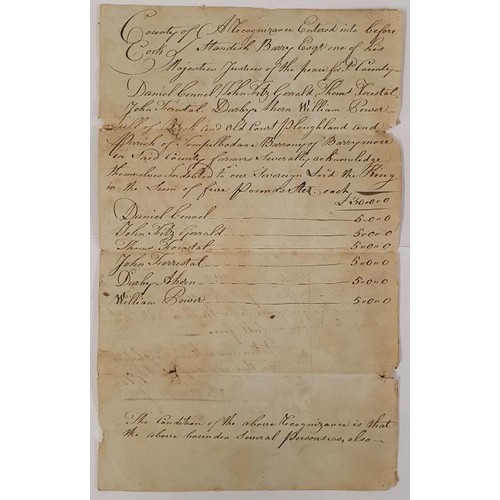 County of A Recognizance Entered into before
Cork Standish Barry Esqr. one of his
Majesties Justices of the peace for sd. County
Daniel Connel John Fitz Gerrald Thoms Forestal
John Forestal Darby Ahern William Power
all of and Old Court Ploughland and
Parish of Templebodan Barrony of Barrymore
in Said County farmers Severally acknowledge
themselves Indebted to our Sovereign Lord the King
in the Sum of five Pounds Ster. each
£30"0"0
Daniel Connel 5"0"0
John Fitz Gerrald 5"0"0
Thoms Forestal 5"0"0
John Forrestal 5"0"0
Darby Ahern 5"0"0
William Power 5"0"0
The Condition of the above Recognizance is that
the above bounden Several Persons, as, also